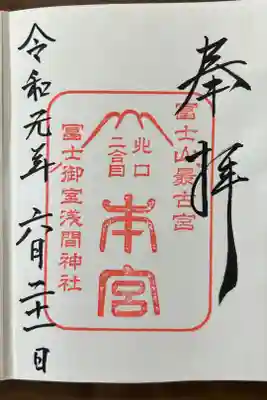 奉拝
富士山最古宮
北口
二合目
本宮
冨士御室浅間神社
令和元年六月二十一日